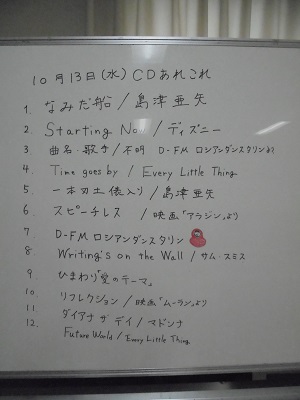 10月13日(水) CDあれこれ
1. なみだ船/島津亜矢
2. Starting Now/ディズニー
3 曲名・歌手/不明 D-FM ロシアンダンスタリンより
4. Time goes by / Every Little Thing
5 一本刀土俵入り/島津亜矢
6 スピーチレス /映画「アラジン」より
7 D-FM ロシアンダンスタリン
8. Writing's on the Wall /サム・スミス
9. ひまわり「愛のテーマ」
10 リフレクション/映画「ムーラン」より
11 ダイアナ ザ デイ/マドンナ
12. Future World / Every Little Thing